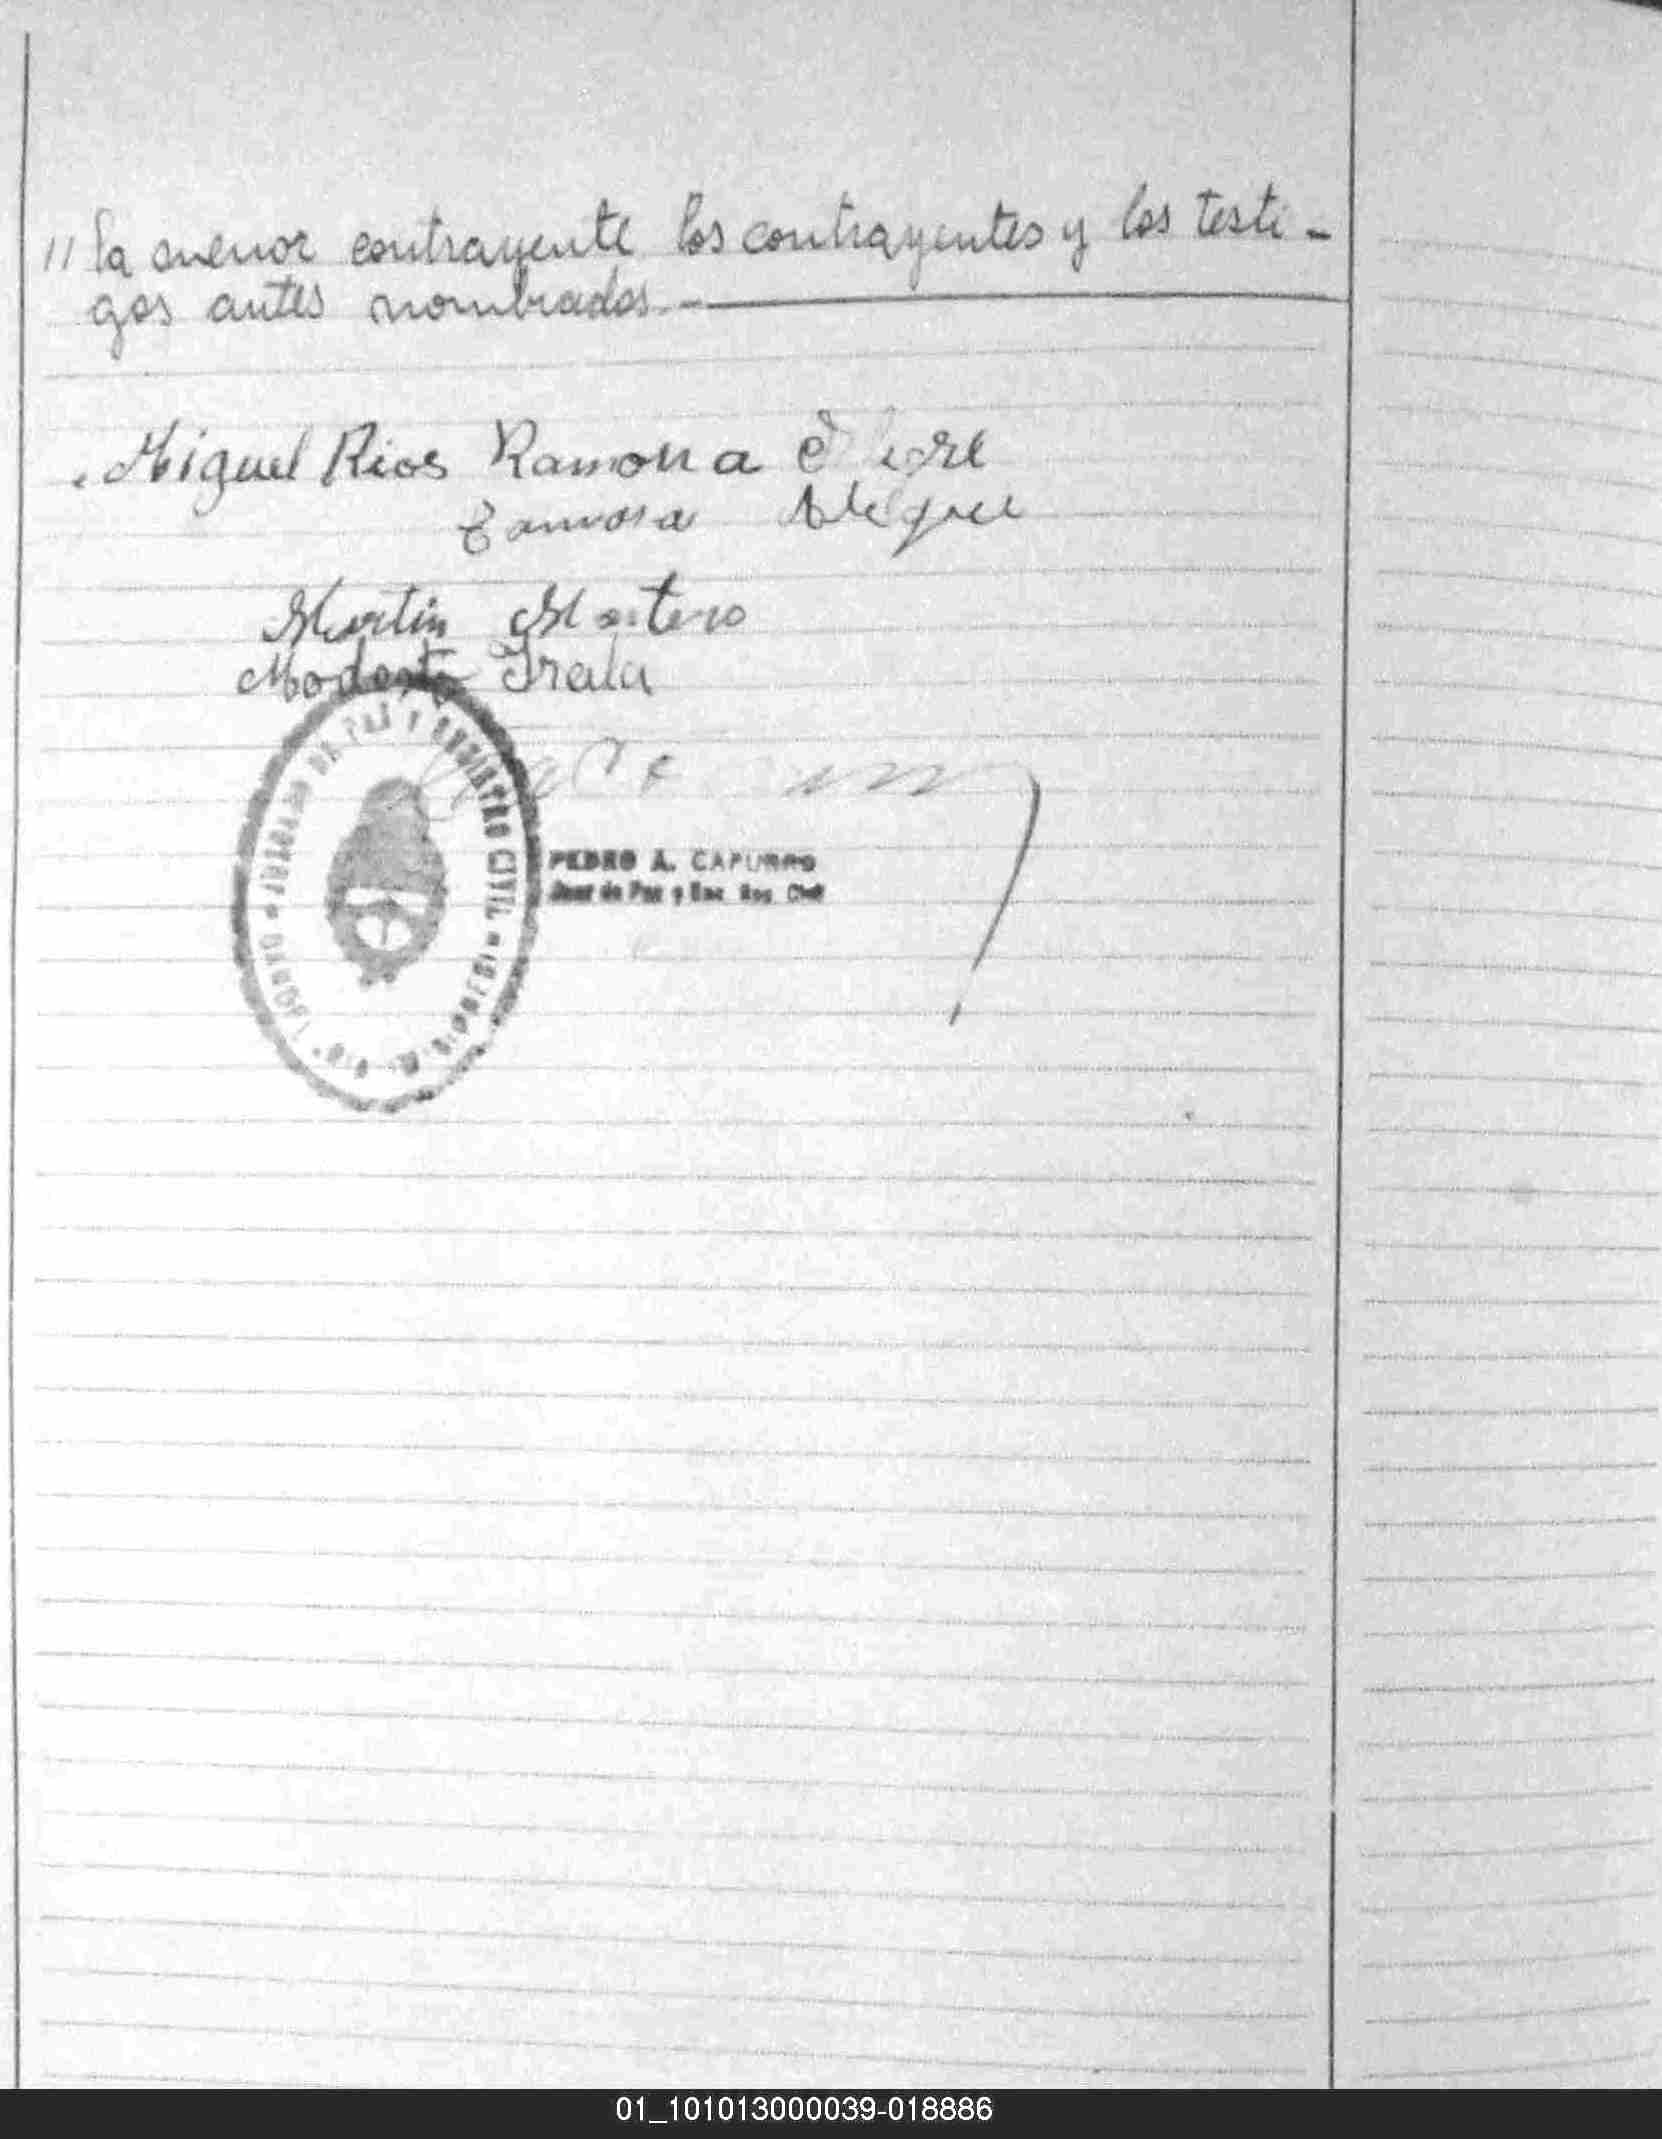 // la menor contrayente los contrayentes y los testi-
gos antes nombrados.-
Miguel Rios Ramona
Ramona Alegre
Martin
Modesto Irala
DE PAZ Y REGISTRO CIVIL
PEDRO A. CAPURRO
Juez de Paz y Enc. Reg. Civil
01_101013000039-018886